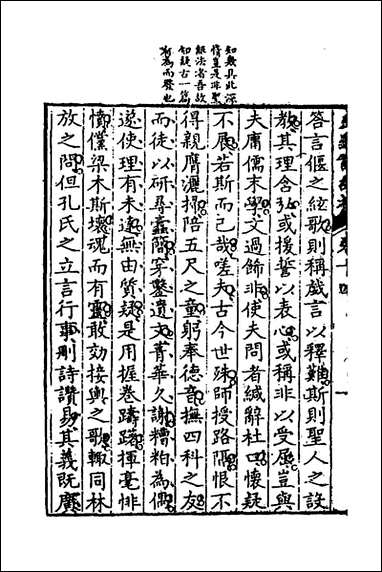 知幾具此深
情豈是非聖
無法者吾故
知疑古一篇
有為而發也
答言偃之絃歌則稱戲言以釋難斯則聖人之設
教其理含弘或援誓以表心或稱非以受屈豈與
夫庸儒末學文過飾非使夫問者緘辭杜口懷疑
不展若斯而已哉嗟夫古今世殊師授路隔恨不
得親膺灑掃陪五尺之童躬奉德音撫四科之友
而徒以研尋蠹簡穿鑿遺文菁華久謝糟粕為偶
遂使理有未達無由質疑是用握卷躊躇揮毫悱
憤儻梁木斯壞魂而有靈敢効接輿之歌輒同林
放之問但孔氏之立言行事刪詩讚易其義既廣